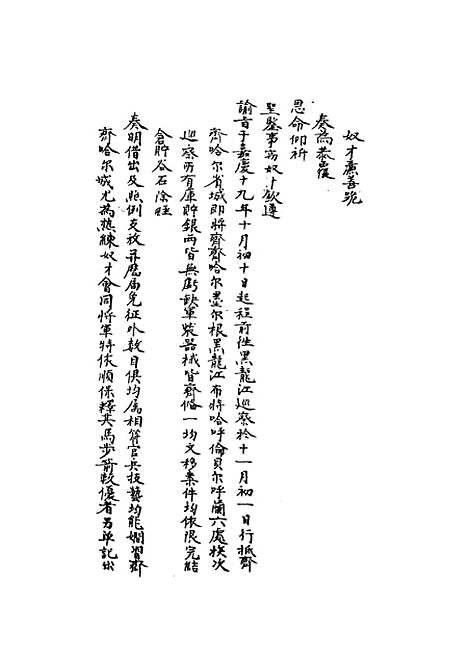 奴才禀善跪
奏為恭覆
恩命仰祈
聖鑒事窃奴才欽遵
諭旨于嘉慶十九年十月初十日起程前往黑龍江巡察於十一月初一日行抵齊
齊哈尔省城即將齊齊哈尔墨尔根黑龍江布特哈呼倫貝尔呼蘭六處挨次
巡察所有庫貯銀兩皆無虧缺軍裝器械皆齊備一均文移案件均依限完結
倉貯谷石除經
奏明借出及照例支放并歷届免征外数目俱均属相符官兵技藝均能嫻習齊
齊哈尔城尤為熟練奴才會同將軍特依順保擇其馬步箭較優者另單記出